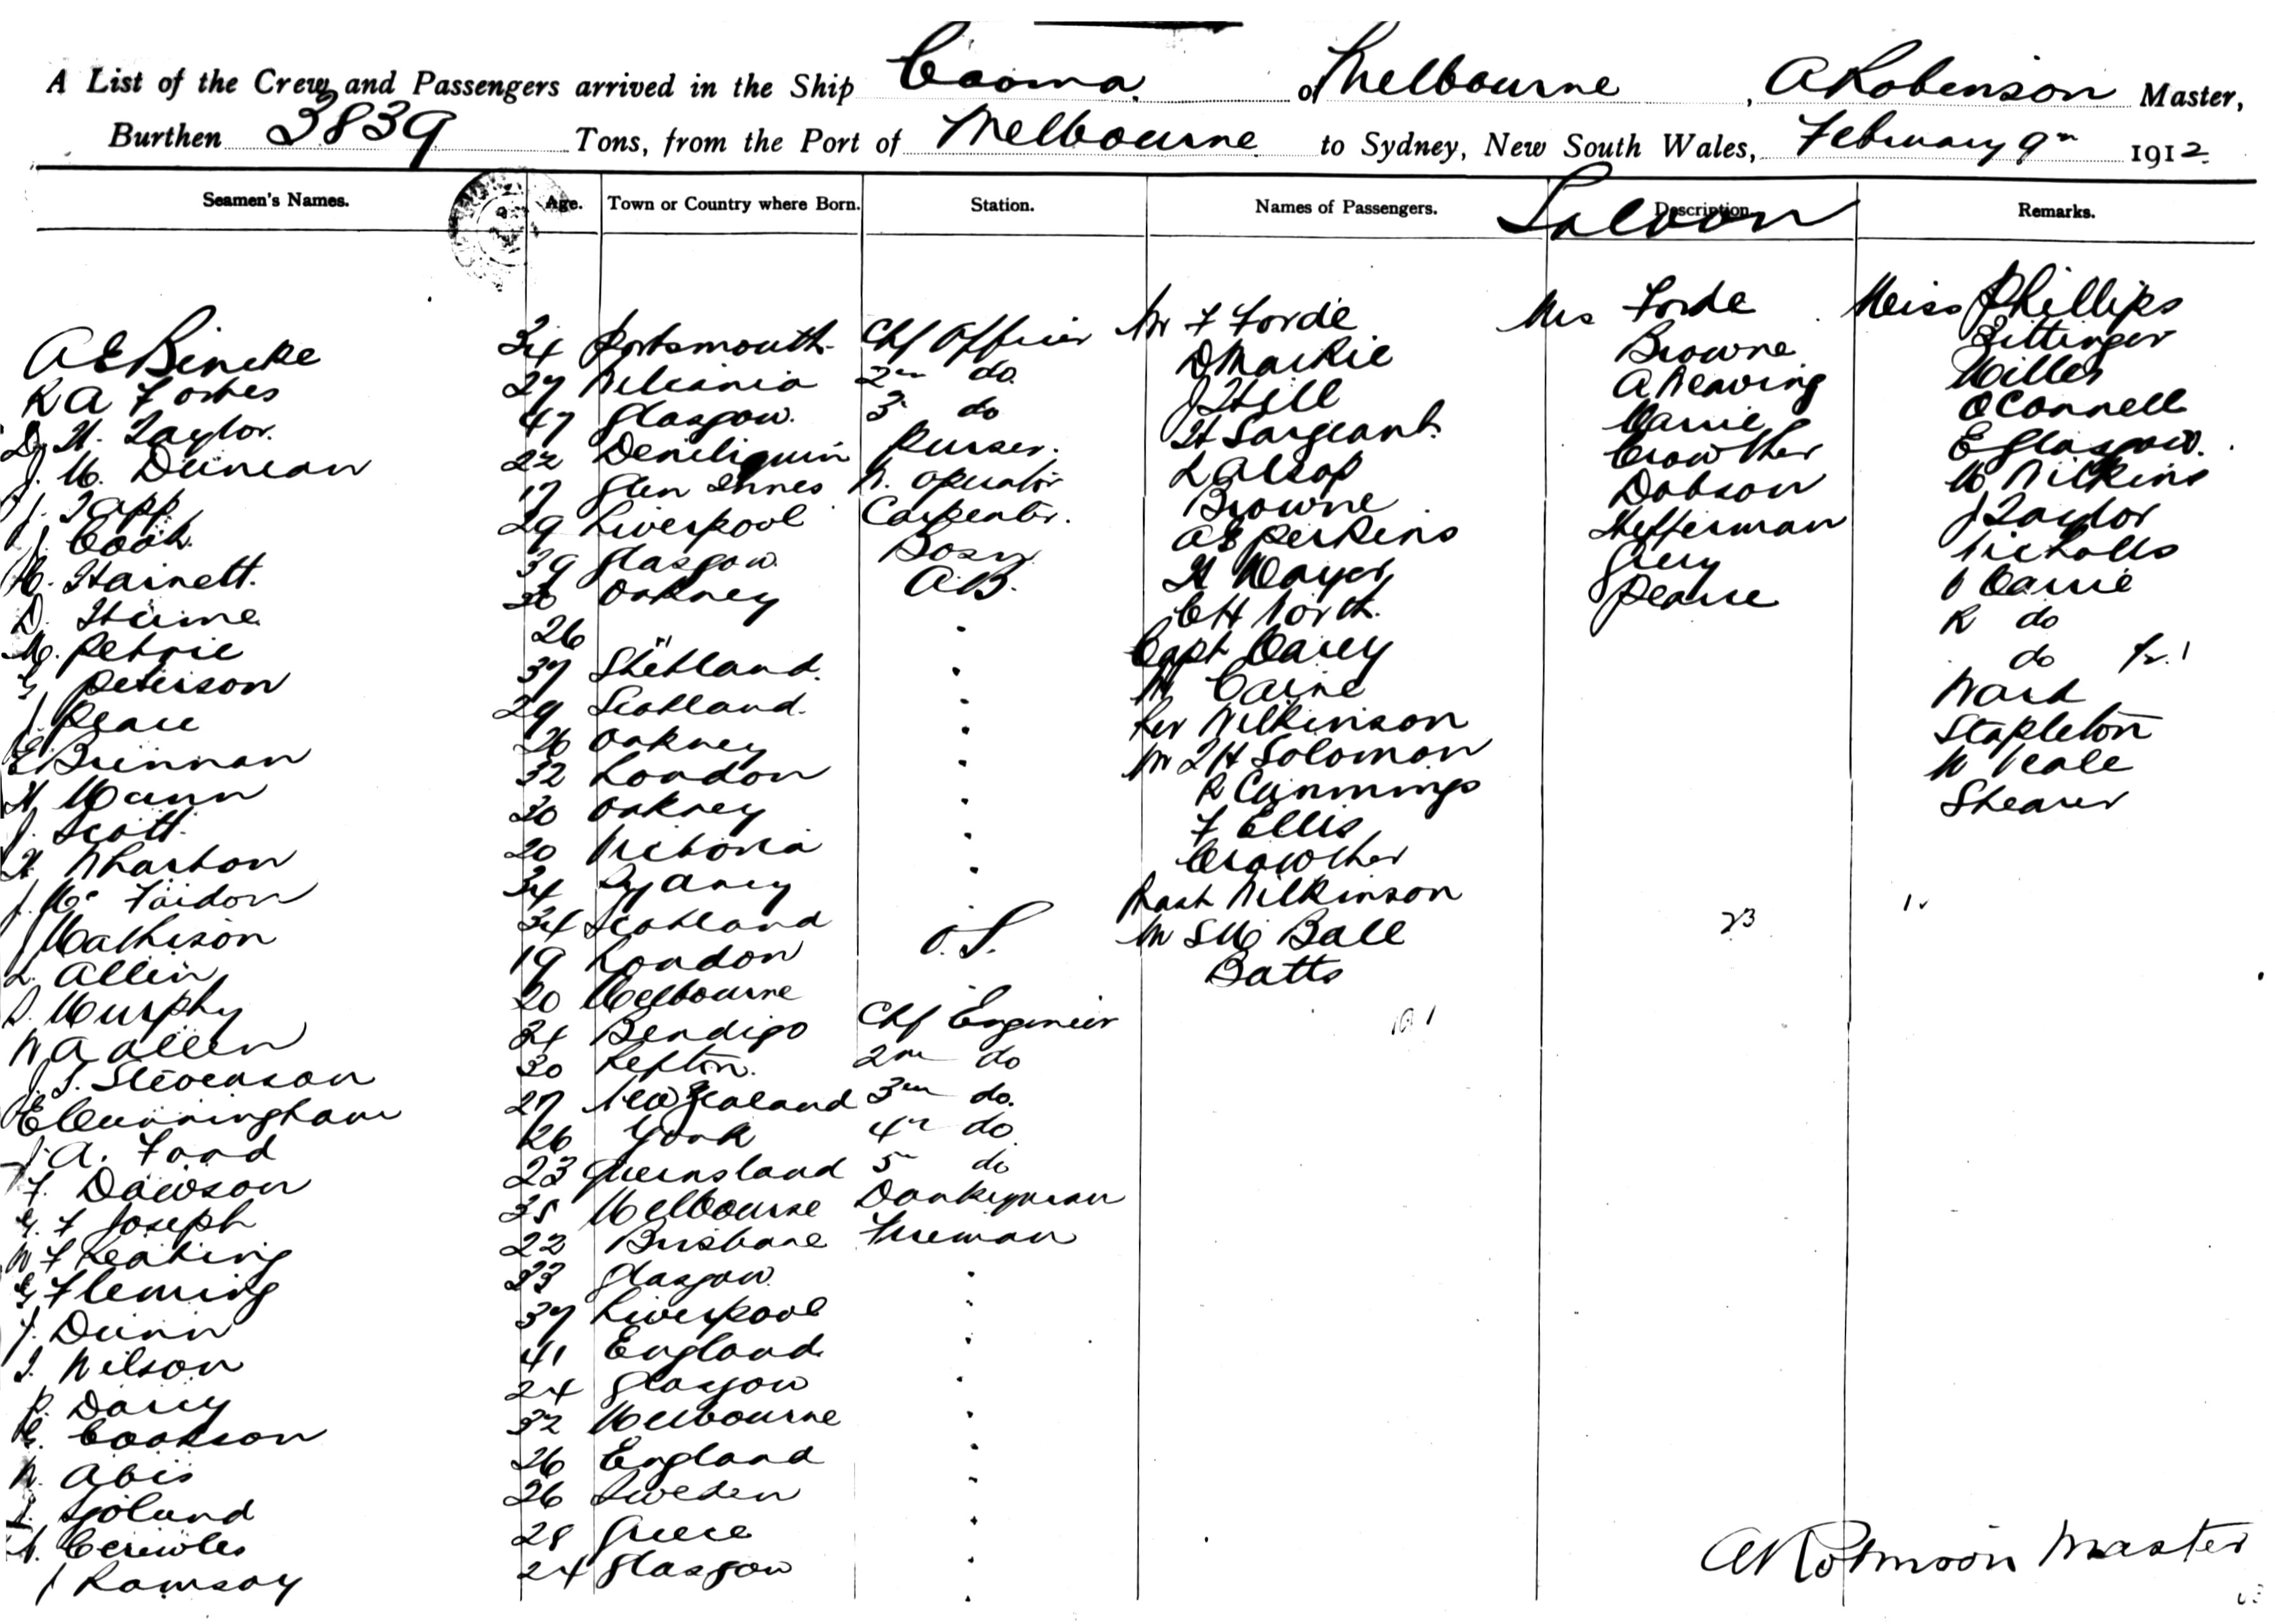 A List of the Crew and Passengers arrived in the Ship Cooma of Melbourne, A Robinson Master,
Burthen 3839 Tons, from the Port of Melbourne to Sydney, New South Wales, February 9th 1912.
Seamen's Names. Age. Town or Country where Born. Station. Names of Passengers. Description Saloon Remarks.
A E Bincke 34 Portsmouth Chf Officer Mr F Forde Mrs Forde Miss Phillips
R A Forbes 27 2nd do. D Mackie Browne Bittinger
D. H. Taylor. 47 Glasgow. 3 do J Hill A Neaving Miller
J. M. Duncan 22 Deniliquin Purser. H Sargeant. Carrie O'Connell
J. Tapp 17 Glen Innes W. Operator L Alsop Crowther E Glasgow.
J. Cook 29 Liverpool Carpenter. Browne Dobson W Wilkins
Harnett. 39 Glasgow. Bosn A E Perkins Heffernan J Taylor
D. Hume. 26 Orkney A.B. H Mayer Grey Nicholls
M. Petrie 26 " C H North. Pearse Carrie
G Peterson 37 Shetland. Capt Carey R do
J. Peace 29 Scotland. Mr Caine do
E Brennan 26 Orkney Rev Wilkinson Ward
H Mann 32 London Mr J H Solomon Stapleton
J. Scott. 20 Orkney R Cummings W Veale
H Wharton 20 Victoria F Ellis Shearer
J. Mc Faidon 34 Sydney Crowther
J Mathison 34 Scotland Mast Wilkinson
L. Allen 19 London O.S. Mr S M Ball 23
D. Murphy 20 Melbourne Batts
W A Allen 34 Bendigo Chf Engineer
J. T. Stevenson 30 2nd do
E Cunningham 27 New Zealand 3rd do.
J. A. Ford 26 York 4th do.
F. Dawson 23 Queensland 5th do
G. F Joseph 35 Melbourne Donkeyman
W F Keating 22 Brisbane Fireman
G Fleming 33 Glasgow.
J. Dunn 37 Liverpool
J. Wilson 41 England.
P. Darcy 24 Glasgow
G. Cookson 32 Melbourne
W. Abis 26 England
Sjolund 26 Sweden
28 Greece
J Ramsay 24 Glasgow
A Robinson Master